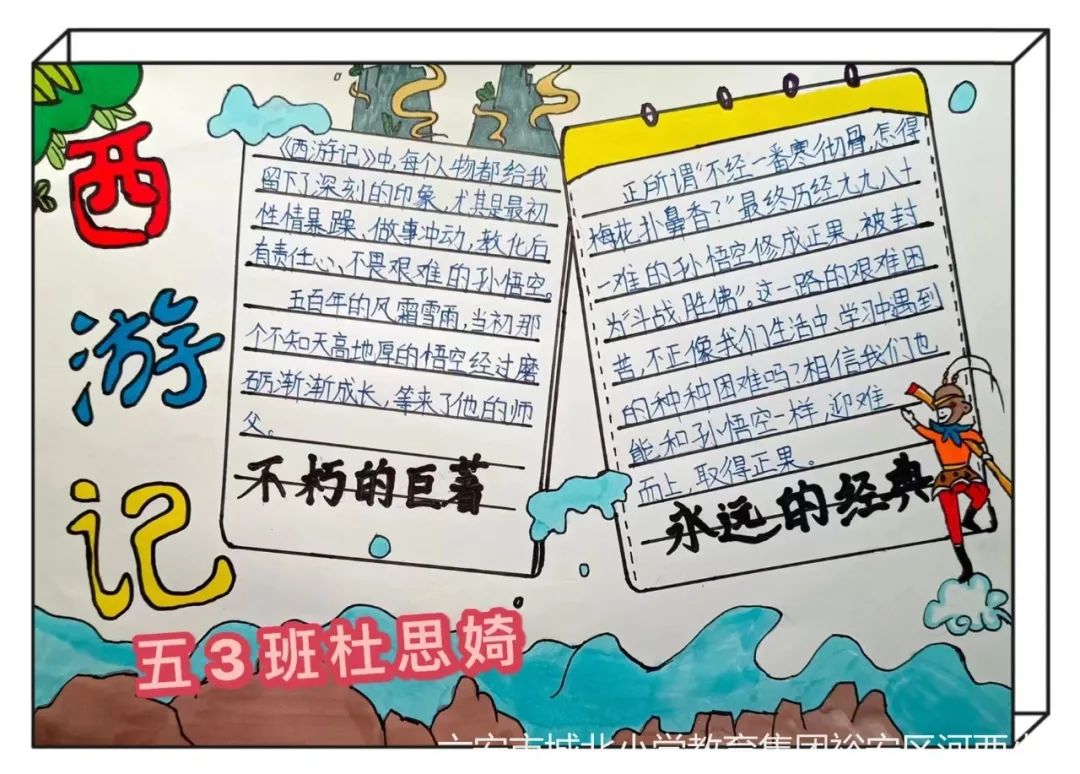 西游记
《西游记》中,每个人物都给我
留下了深刻的印象,尤其是最初
性情暴躁、做事冲动,教化后
有责任心、不畏艰难的孙悟空。
五百年的风霜雪雨,当初那
个不知天高地厚的悟空经过磨
砺渐渐成长,等来了他的师
父。
不朽的巨著
正所谓"不经一番寒彻骨,怎得
梅花扑鼻香?"最终历经九九八十
一难的孙悟空修成正果,被封
为"斗战胜佛"。这一路的艰难困
苦,不正像我们生活中、学习中遇到
的种种困难吗?相信我们也
能和孙悟空一样,迎难
而上,取得正果。
永远的经典
五3班杜思婍
六安市城北小学教育集团裕安区河西